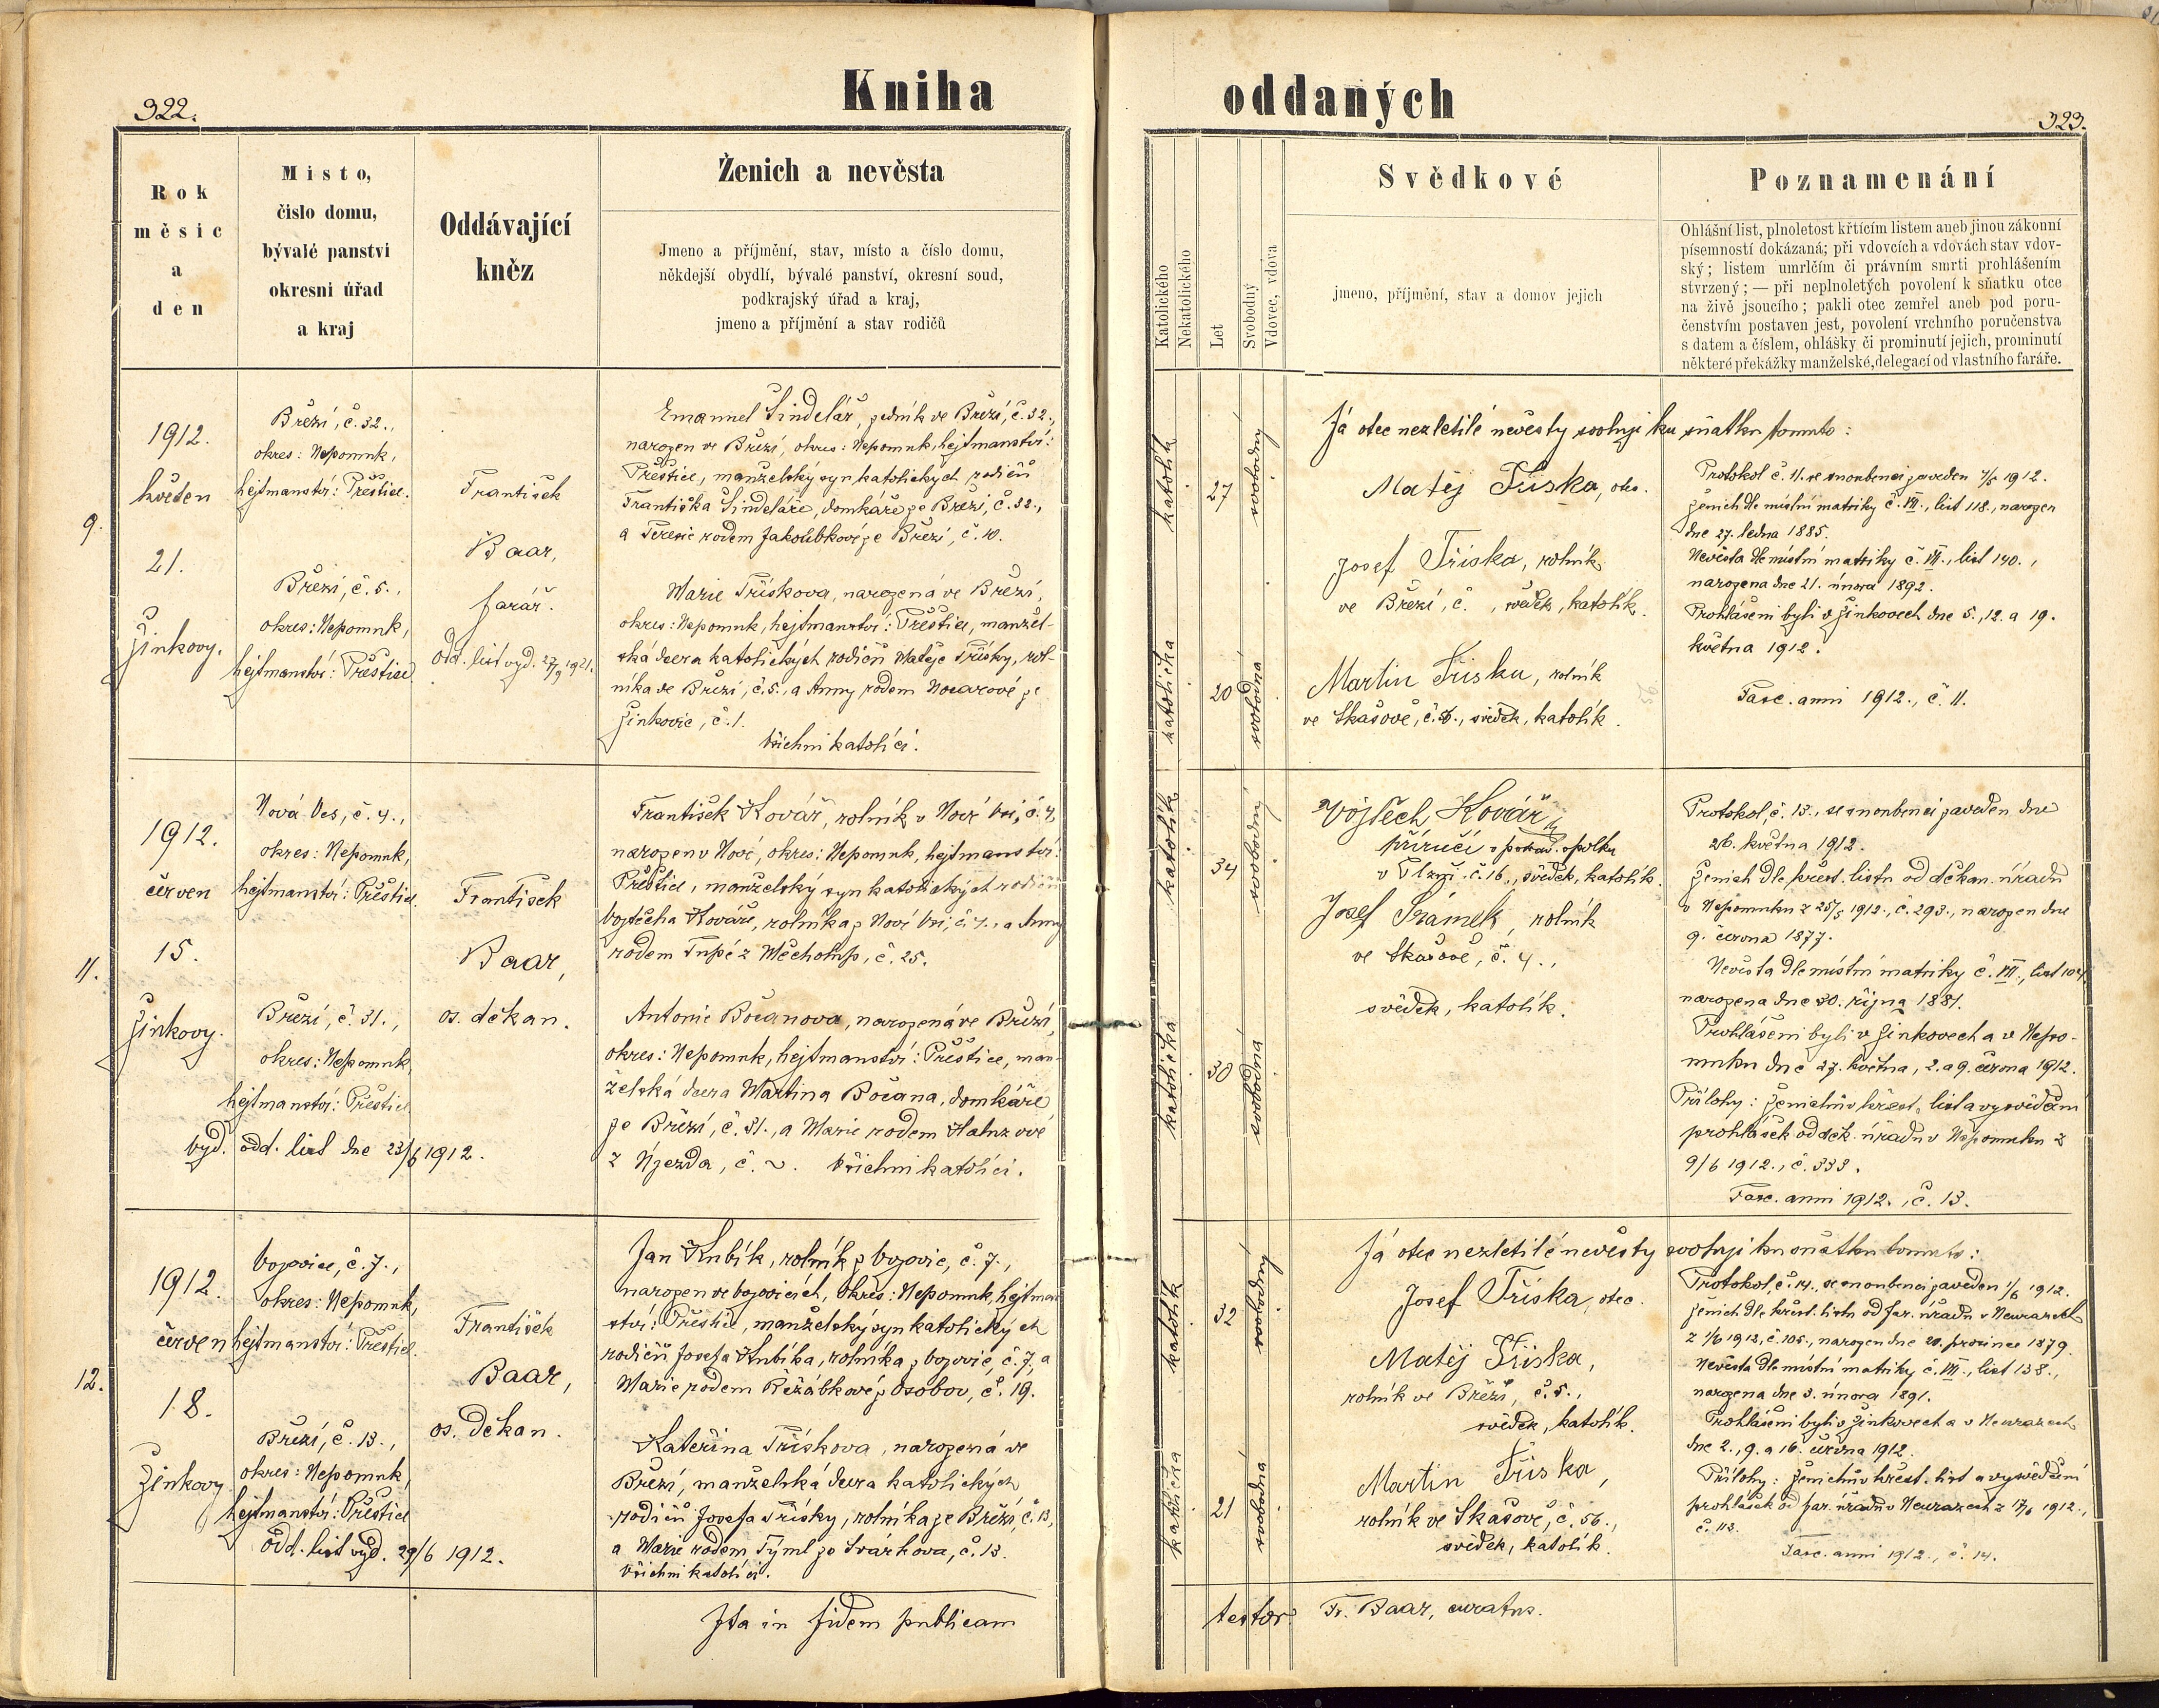 322.
Kniha
Rok
měsíc
a
den
Místo,
číslo domu,
bývalé panství
okresní úřad
a kraj
Oddávající
kněz
Ženich a nevěsta
Jmeno a příjmění, stav, místo a číslo domu,
někdejší obydlí, bývalé panství, okresní soud,
podkrajský úřad a kraj,
jmeno a příjmění a stav rodičů
9.
1912.
květen
21.
Žinkovy.
Březí, č. 32.,
okres: Nepomuk,
hejtmanství: Přeštice.
Březí, č. 5.,
okres: Nepomuk,
hejtmanství: Přeštice
František
Baar,
farář.
Odd. list vyd. 27/9 1921.
Emanuel Šindelář, zedník ve Březí, č. 32.,
narozen ve Březí, okres: Nepomuk, hejtmanství:
Přeštice, manželský syn katolických rodičů
Františka Šindeláře, domkáře ze Březí, č. 32.,
a Terezie rodem Jakoubkové ze Březí, č. 10.
Marie Třískova, narozená ve Březí,
okres: Nepomuk, hejtmanství: Přeštice, manžel-
ská dcera katolických rodičů Matěje Třísky, rol-
níka ve Březí, č. 5., a Anny rodem Nocarové ze
Žinkovic, č. 1.
Všichni katolíci.
11.
1912.
červen
15.
Žinkovy.
Nová Ves, č. 4.,
okres: Nepomuk,
hejtmanství: Přeštice.
Březí, č. 31.,
okres: Nepomuk,
hejtmanství: Přeštice
vyd. odd. list dne 23/6 1912.
František
Baar,
os. děkan.
František Kovář, rolník v Nové Vsi, č. 4,
narozen v Nové, okres: Nepomuk, hejtmanství:
Přeštice, manželský syn katolických rodičů
Vojtěcha Kováře, rolníka z Nové Vsi, č. 4., a Anny
rodem Tupé z Měcholup, č. 25.
Antonie Bočanova, narozená ve Březí,
okres: Nepomuk, hejtmanství: Přeštice, man-
želská dcera Martina Bočana, domkáře
ze Březí, č. 31., a Marie rodem Haluzové
z Újezda, č. ~. Všichni katolíci.
12.
1912.
červen
18.
Žinkovy
Vojovice, č. 7.,
okres: Nepomuk,
hejtmanství: Přeštice.
Březí, č. 13.,
okres: Nepomuk,
hejtmanství: Přeštice
Odd. list vyd. 29/6 1912.
František
Baar,
os. děkan.
Jan Kubík, rolník z Vojovic, č. 7.,
narozen ve Vojovicích, okres: Nepomuk, hejtman-
ství: Přeštice, manželský syn katolických
rodičů Josefa Kubíka, rolníka z Vojovic, č. 7., a
Marie rodem Řežábkové z Osobov, č. 19.
Kateřina Třískova, narozená ve
Březí, manželská dcera katolických
rodičů Josefa Třísky, rolníka ze Březí, č. 13,
a Marie rodem Týml ze Svárkova, č. 13.
Všichni katolíci.
Ita in fidem publicam
oddaných
323.
Katolického
Nekatolického
Let
Svobodný
Vdovec, vdova
Svědkové
jmeno, příjmění, stav a domov jejich
Poznamenání
Ohlášní list, plnoletost křtícím listem aneb jinou zákonní
písemností dokázaná; při vdovcích a vdovách stav vdov-
ský; listem umrlčím či právním smrti prohlášením
stvrzený; — při neplnoletých povolení k sňatku otce
na živě jsoucího; pakli otec zemřel aneb pod poru-
čenstvím postaven jest, povolení vrchního poručenstva
s datem a číslem, ohlášky či prominutí jejich, prominutí
některé překážky manželské, delegací od vlastního faráře.
katolík
27
svobodný
katolička
20
svobodná
Já otec nezletilé nevěsty svoluji ku sňatku tomuto:
Matěj Tříska, otec.
Josef Tříska, rolník
ve Březí, č. , svědek, katolík.
Martin Tříska, rolník
ve Skašově, č. 56., svědek, katolík.
Protokol č. 11. se snoubenci zaveden 4/5 1912.
Ženich dle místní matriky č. VII., list 118., narozen
dne 27. ledna 1885.
Nevěsta dle místní matriky č. VII., list 140.,
narozena dne 21. února 1892.
Prohlášeni byli v Žinkovech dne 5., 12. a 19.
května 1912.
Fasc. anni 1912., č. 11.
katolík
34
svobodný
katolička
30
svobodná
Vojtěch Kovář
příručí v potrav. spolku
v Plzni č. 16., svědek, katolík.
Josef Šrámek, rolník
ve Skašově, č. 4.,
svědek, katolík.
Protokol, č. 13., se snoubenci zaveden dne
26. května 1912.
Ženich dle křest. listu od děkan. úřadu
v Nepomuku z 25/5 1912., č. 293., narozen dne
9. června 1877.
Nevěsta dle místní matriky č. VII., list 104,
narozena dne 30. října 1881.
Prohlášeni byli v Žinkovech a v Nepo-
muku dne 27. května, 2. a 9. června 1912.
Přílohy: Ženichův křest. list a vysvědčení
prohlášek od děk. úřadu v Nepomuku z
9/6 1912., č. 333.
Fasc. anni 1912., č. 13.
katolík
32
svobodný
katolička
21
svobodná
Já otec nezletilé nevěsty svoluji ku sňatku tomuto:
Josef Tříska, otec.
Matěj Tříska,
rolník ve Březí, č. 5.,
svědek, katolík.
Martin Tříska,
rolník ve Skašově, č. 56.,
svědek, katolík.
Protokol, č. 14., se snoubenci zaveden 1/6 1912.
Ženich dle křest. listu od far. úřadu v Neurazech
z 1/6 1912, č. 105., narozen dne 20. prosince 1879.
Nevěsta dle místní matriky č. VII., list 138.,
narozena dne 3. února 1891.
Prohlášeni byli v Žinkovech a v Neurazech
dne 2., 9. a 16. června 1912.
Přílohy: Ženichův křest. list a vysvědčení
prohlášek od far. úřadu v Neurazech z 17/6 1912.,
č. 113.
Fasc. anni 1912., č. 14.
testor Fr. Baar, curatus.